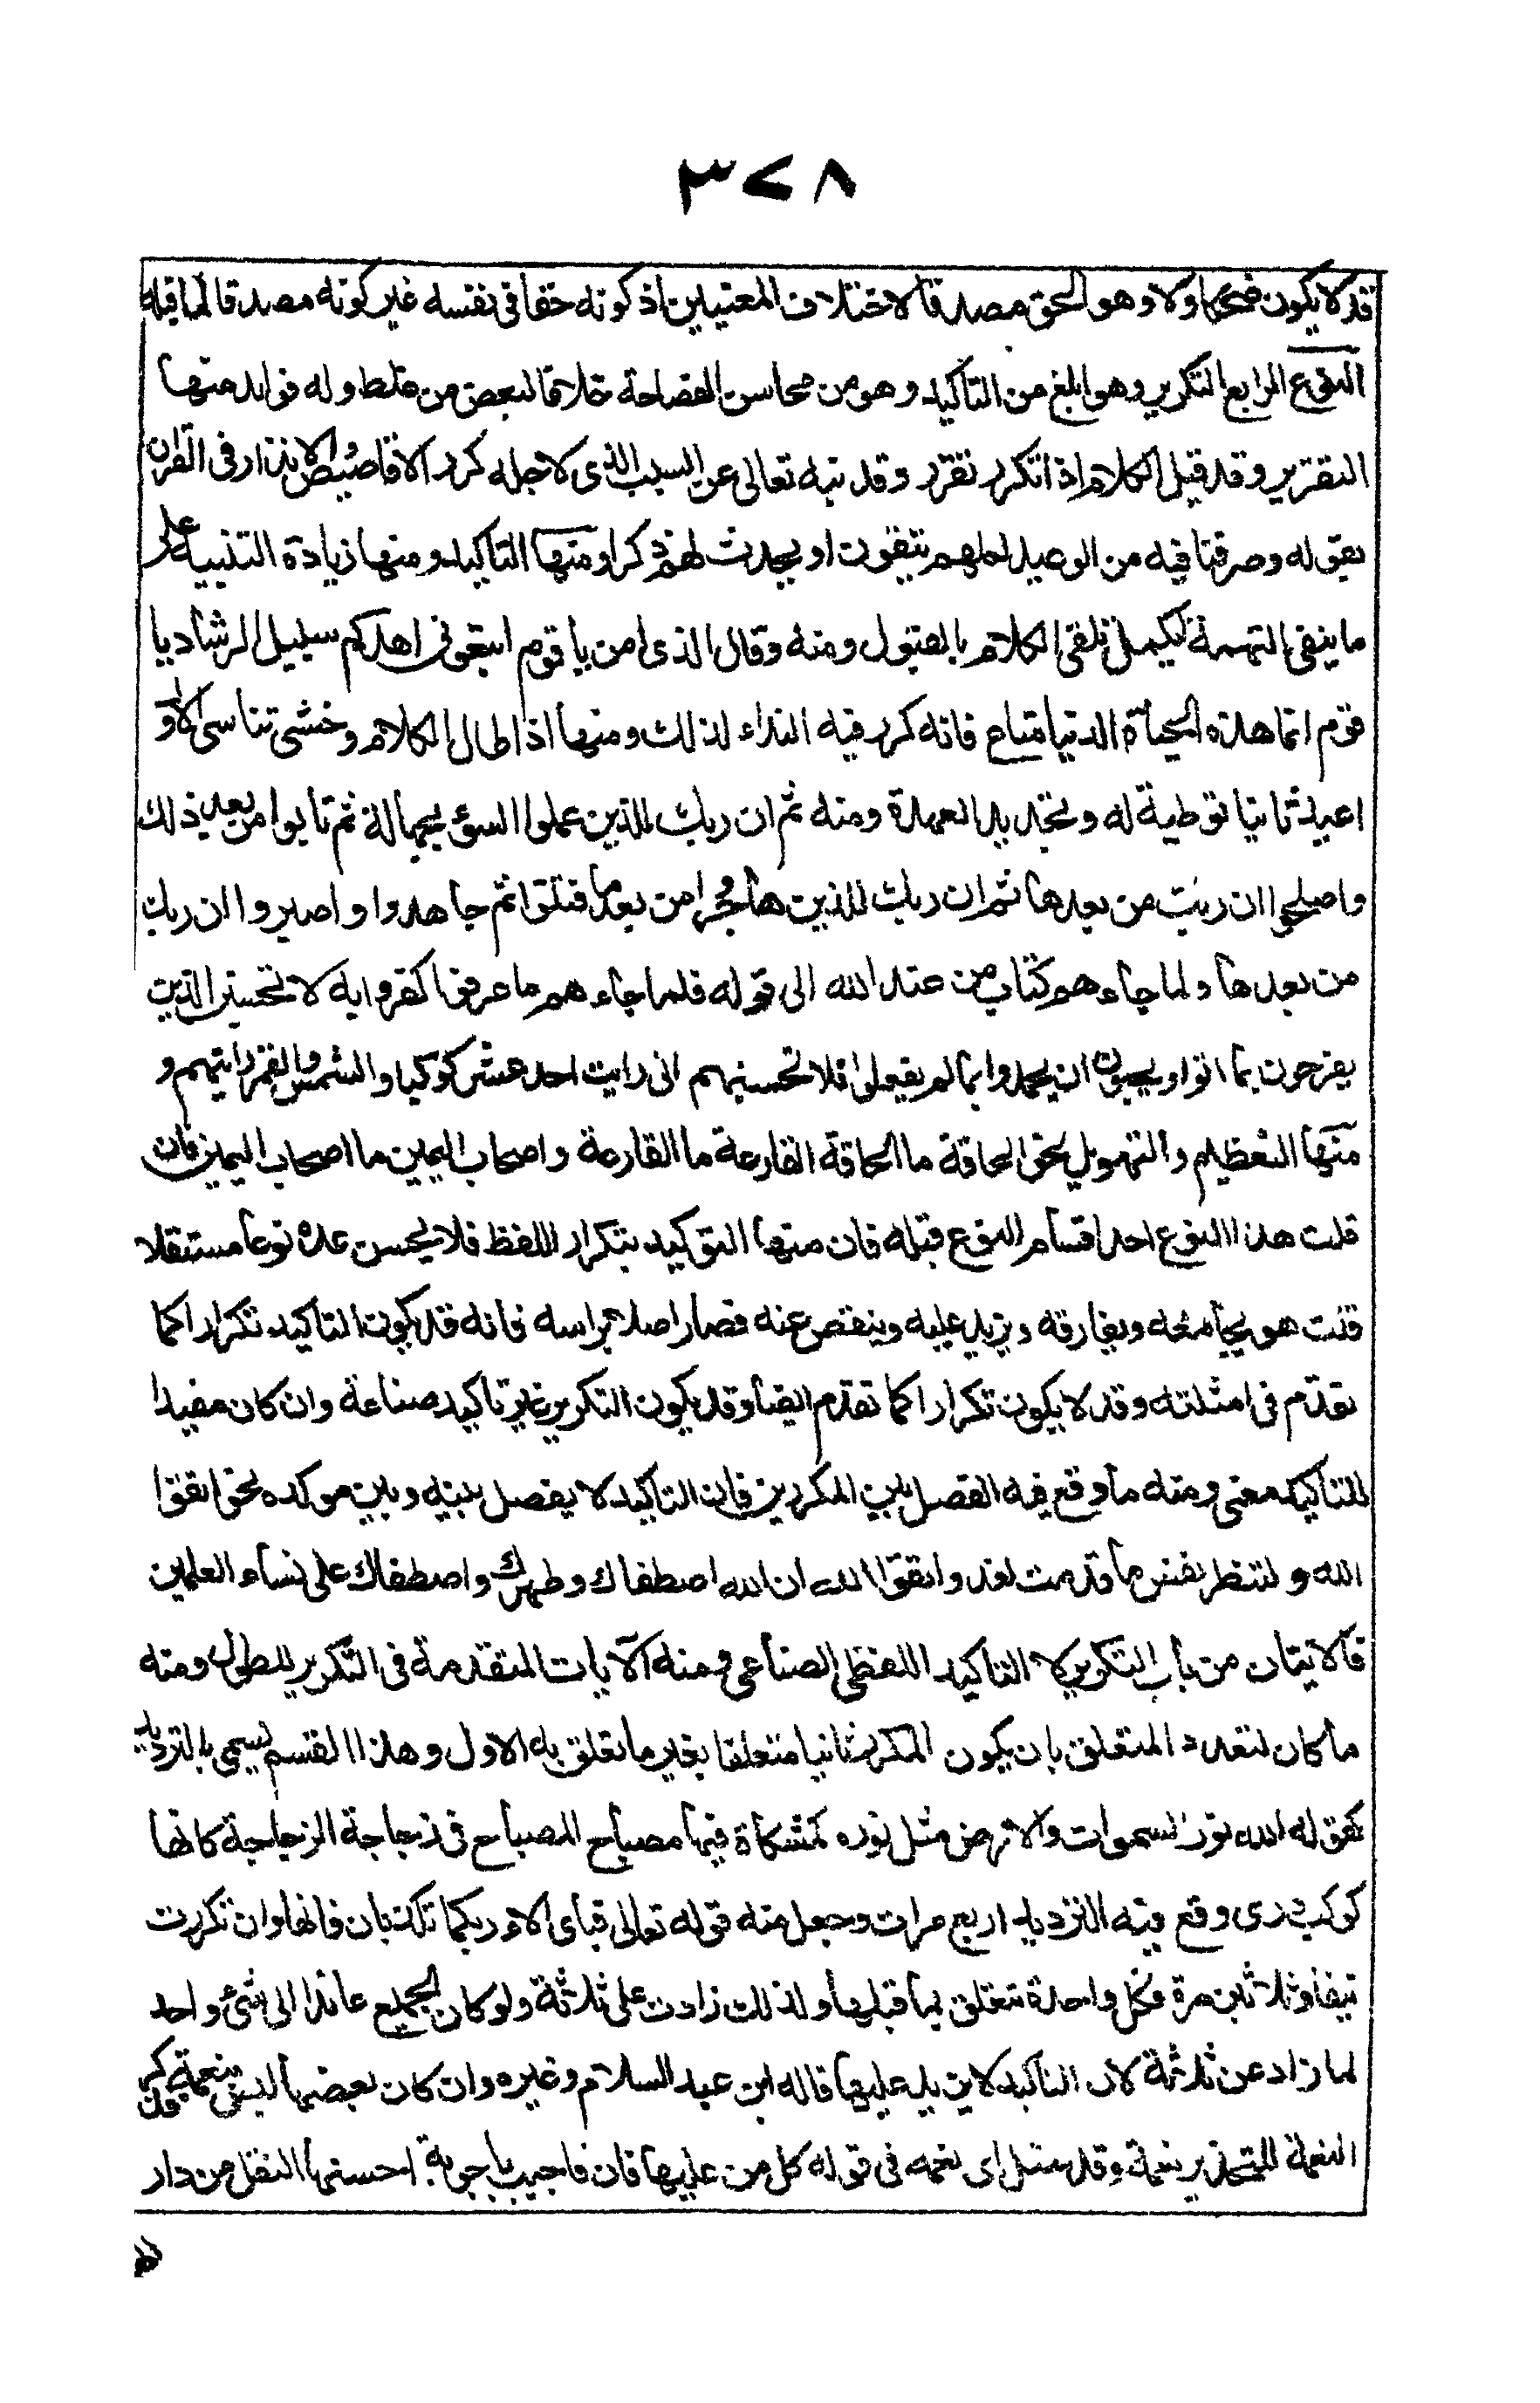 ٣٧٨
قد لا يكون ضحكا ولا وهو الحق مصدقا لاختلاف المعنيين اذ كونه حقا فى نفسه غير كونه مصدقا لما قبله
النوع الرابع التكرير وهو ابلغ من التاكيد وهو من محاسن الفصاحة خلافا لبعض من غلط وله فوايد منها
التقرير وقد قيل الكلام اذا تكرر تقرر وقد نبه تعالى عن السبب الذى لاجله كرر الاقاصيص والانذار فى القران
بقوله وصرفنا فيه من الوعيد لعلهم يتقون او يحدث لهم ذكرا ومنها التاكيد ومنها زيادة التنبيه على
ما ينفى التهمة ليكمل تلقى الكلام بالقبول ومنه وقال الذى امن يا قوم اتبعونى اهدكم سبيل الرشاد يا
قوم انما هذه الحياة الدنيا متاع فانه كرر فيه النداء لذلك ومنها اذا طال الكلام وخشى تناسى الاول
اعيد ثانيا توطية له وتجديدا لعهده ومنه ثم ان ربك للذين عملوا السوء بجهالة ثم تابوا من بعد ذلك
واصلحوا ان ربك من بعدها ثم ان ربك للذين هاجروا من بعد ما فتنوا ثم جاهدوا واصبروا ان ربك
من بعدها ولما جاءهم كتاب من عند الله الى قوله فلما جاءهم ما عرفوا كفروا به لا تحسبن الذين
يفرحون بما اتوا ويحبون ان يحمدوا بما لم يفعلوا فلا تحسبنهم انى رايت احد عشر كوكبا والشمس والقمر رايتهم و
منها التعظيم والتهويل نحو الحاقة ما الحاقة القارعة ما القارعة واصحاب اليمين ما اصحاب اليمين فان
قلت هذا النوع احد اقسام النوع قبله فان منها التوكيد بتكرار اللفظ فلا يحسن عده نوعا مستقلا
قلت هو يجامعه ويفارقه ويزيد عليه وينقص عنه فصار اصلا براسه فانه قد يكون التاكيد تكرارا كما
تقدم فى امثلته وقد لا يكون تكرارا كما تقدم ايضا وقد يكون التكرير غير تاكيد صناعة وان كان مفيدا
للتاكيد معنى ومنه ما وقع فيه الفصل بين المكررين فان التاكيد لا يفصل بينه وبين موكده نحو اتقوا
الله ولتنظر نفس ما قدمت لغد واتقوا الله ان الله اصطفاك وطهرك واصطفاك على نساء العلمين
فالايتان من باب التكرير لا التاكيد اللفظى الصناعى ومنه الايات المتقدمة فى التكرير للطول ومنه
ما كان لتعدد المتعلق بان يكون المكرر ثانيا متعلقا بغير ما تعلق به الاول وهذا القسم يسمى بالترديد
كقوله الله نور السموات والارض مثل نوره كمشكاة فيها مصباح المصباح فى زجاجة الزجاجة كانها
كوكب درى وقع فيه الترديد اربع مرات وجعل منه قوله تعالى فباى الاء ربكما تكذبان فانها وان تكررت
نيفا وثلاثين مرة فكل واحدة تتعلق بما قبلها ولذلك زادت على ثلاثة ولو كان الجميع عائدا الى شئ واحد
لما زاد عن ثلاثة لان التاكيد لا يزيد عليها قاله ابن عبد السلام وغيره وان كان بعضها ليس بنعمة فذكر
النعمة للتحذير نعمة وقد سئل اى نعمه فى قوله كل من عليها فان فاجيب باجوبة احسنها النقل من دار